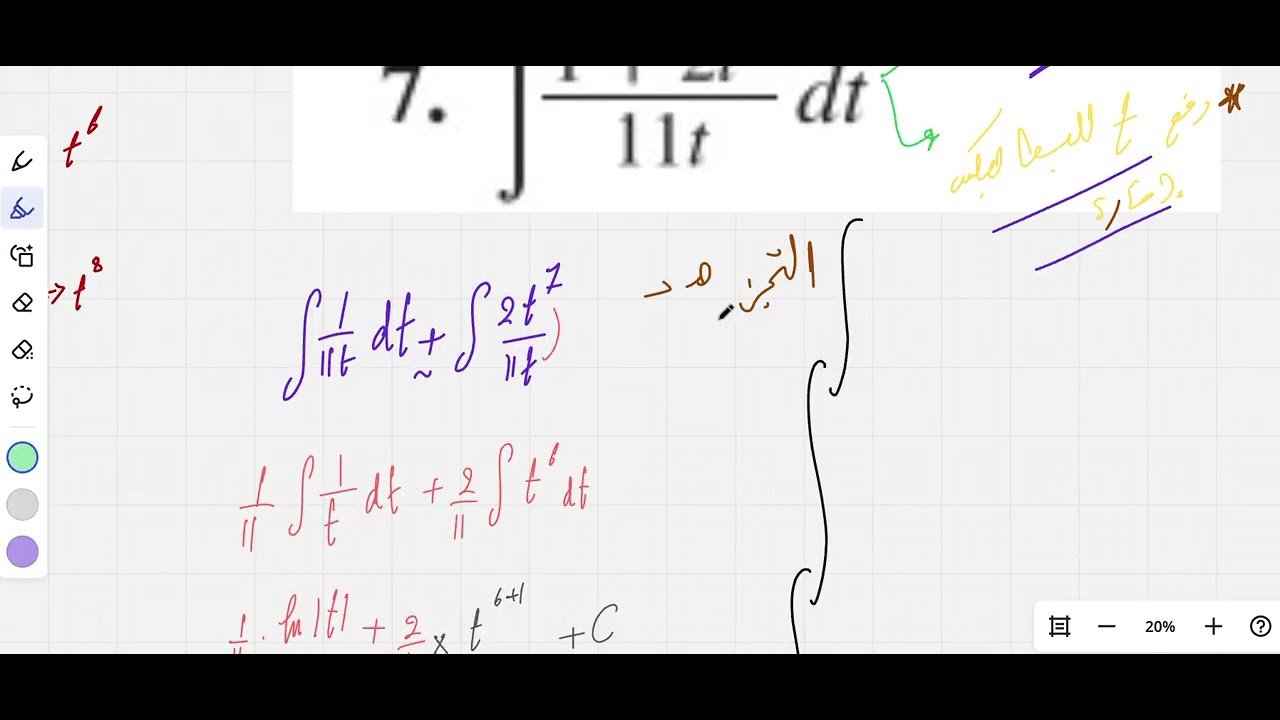 7. ∫ 1 + 2t / 11t dt
t^6
* رفع t للبسط
→ t^8
التجزئة →
∫ 1/11t dt + ∫ 2t^7/11t
1/11 ∫ 1/t dt + 2/11 ∫ t^6 dt
1/11 . ln|t| + 2/ × t^6+1 + C
20%